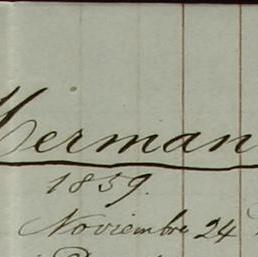 Herman
1859.
Noviembre 24